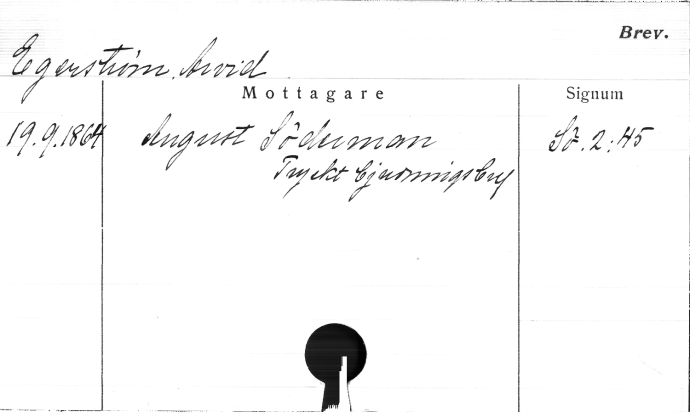 Brev.
Egerström, Arvid
Mottagare Signum
19.9.1864 August Söderman Sö. 2:45
Tryckt